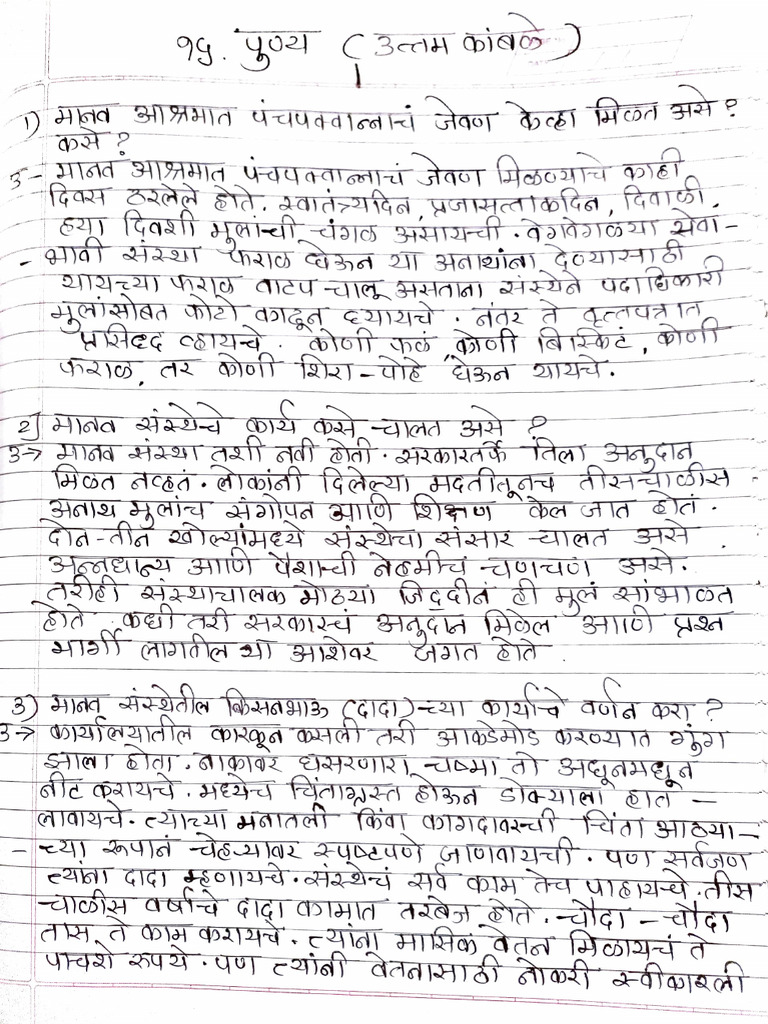 १५. पुण्य (उत्तम कांबळे)
1) मानव आश्रमात पंचपक्वान्नाचं जेवण केव्हा मिळत असे?
कसे?
उ- मानव आश्रमात पंचपक्वान्नाचं जेवण मिळण्याचे काही
दिवस ठरलेले होते. स्वातंत्र्यदिन, प्रजासत्ताकदिन, दिवाळी.
हया दिवशी मुलांची चंगळ असायची. वेगवेगळया सेवा-
- भावी संस्था फराळ घेऊन या अनाथांना देण्यासाठी
यायच्या फराळ वाटप चालू असताना संस्थेने पदाधिकारी
मुलांसोबत फोटो काढून घ्यायचे. नंतर ते वृत्तपत्रात
प्रसिध्द व्हायचे. कोणी फळं, कोणी बिस्किटं, कोणी
फराळ, तर कोणी शिरा-पोहे घेऊन यायचे.
2) मानव संस्थेचे कार्य कसे चालत असे?
उ→ मानव संस्था तशी नवी होती. सरकारतर्फे तिला अनुदान
मिळत नव्हतं. लोकांनी दिलेल्या मदतीतूनच तीसचाळीस
अनाथ मुलांच संगोपन आणि शिक्षण केल जात होतं.
दोन-तीन खोल्यांमध्ये संस्थेचा संसार चालत असे.
अन्नधान्य आणि पैशाची नेहमीचं चणचण असे.
तरीही संस्थाचालक मोठया जिद्दीनं ही मुलं सांभाळत
होते. कधी तरी सरकारचं अनुदान मिळेल आणि प्रश्न
मार्गी लागतील या आशेवर जगत होते.
3) मानव संस्थेतील किसनभाऊ (दादा)-च्या कार्याचे वर्णन करा?
उ→ कार्यालयातील कारकून कसली तरी आकडेमोड करण्यात गुंग
झाला होता. नाकावर घसरणारा चष्मा तो अधूनमधून
नीट करायचे. मध्येच चिंताग्रस्त होऊन डोक्याला हात -
लावायचे. त्याच्या मनातली किंवा कागदावरची चिंता आठया-
-च्या रूपानं चेहऱ्यावर स्पष्टपणे जाणवायची. पण सर्वजण
त्यांना दादा म्हणायचे. संस्थेचं सर्व काम तेच पाहायचे. तीस
चाळीस वर्षाचे दादा कामात तरबेज होते. चौदा-चौदा
तास ते काम करायचे. त्यांना मासिक वेतन मिळायचं ते
पाचशे रूपये. पण त्यांनी वेतनासाठी नोकरी स्वीकारली